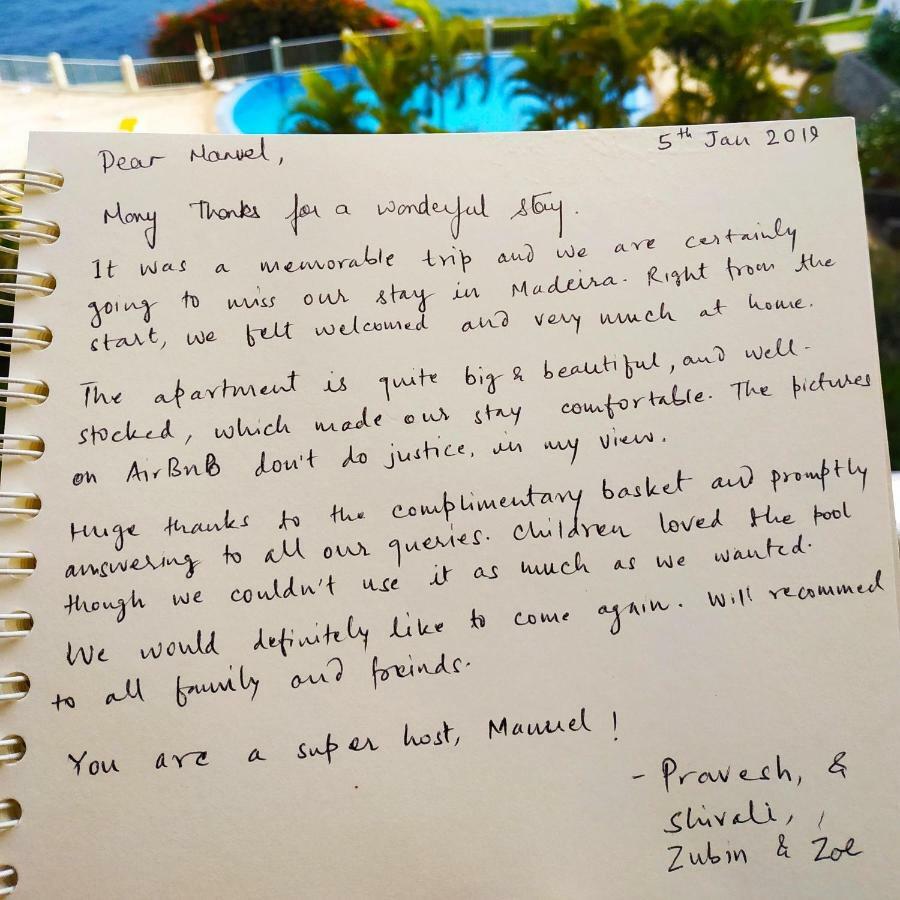 5th Jan 2019
Dear Manuel,
Many Thanks for a wonderful stay.
It was a memorable trip and we are certainly
going to miss our stay in Madeira. Right from the
start, we felt welcomed and very much at home.
The apartment is quite big & beautiful, and well-
stocked, which made our stay comfortable. The pictures
on AirBnB don't do justice, in my view.
Huge thanks to the complimentary basket and promptly
answering to all our queries. Children loved the pool
though we couldn't use it as much as we wanted.
We would definitely like to come again. Will recommed
to all family and freinds.
You are a super host, Manuel!
- Pravesh, &
Shivali,
Zubin & Zoe